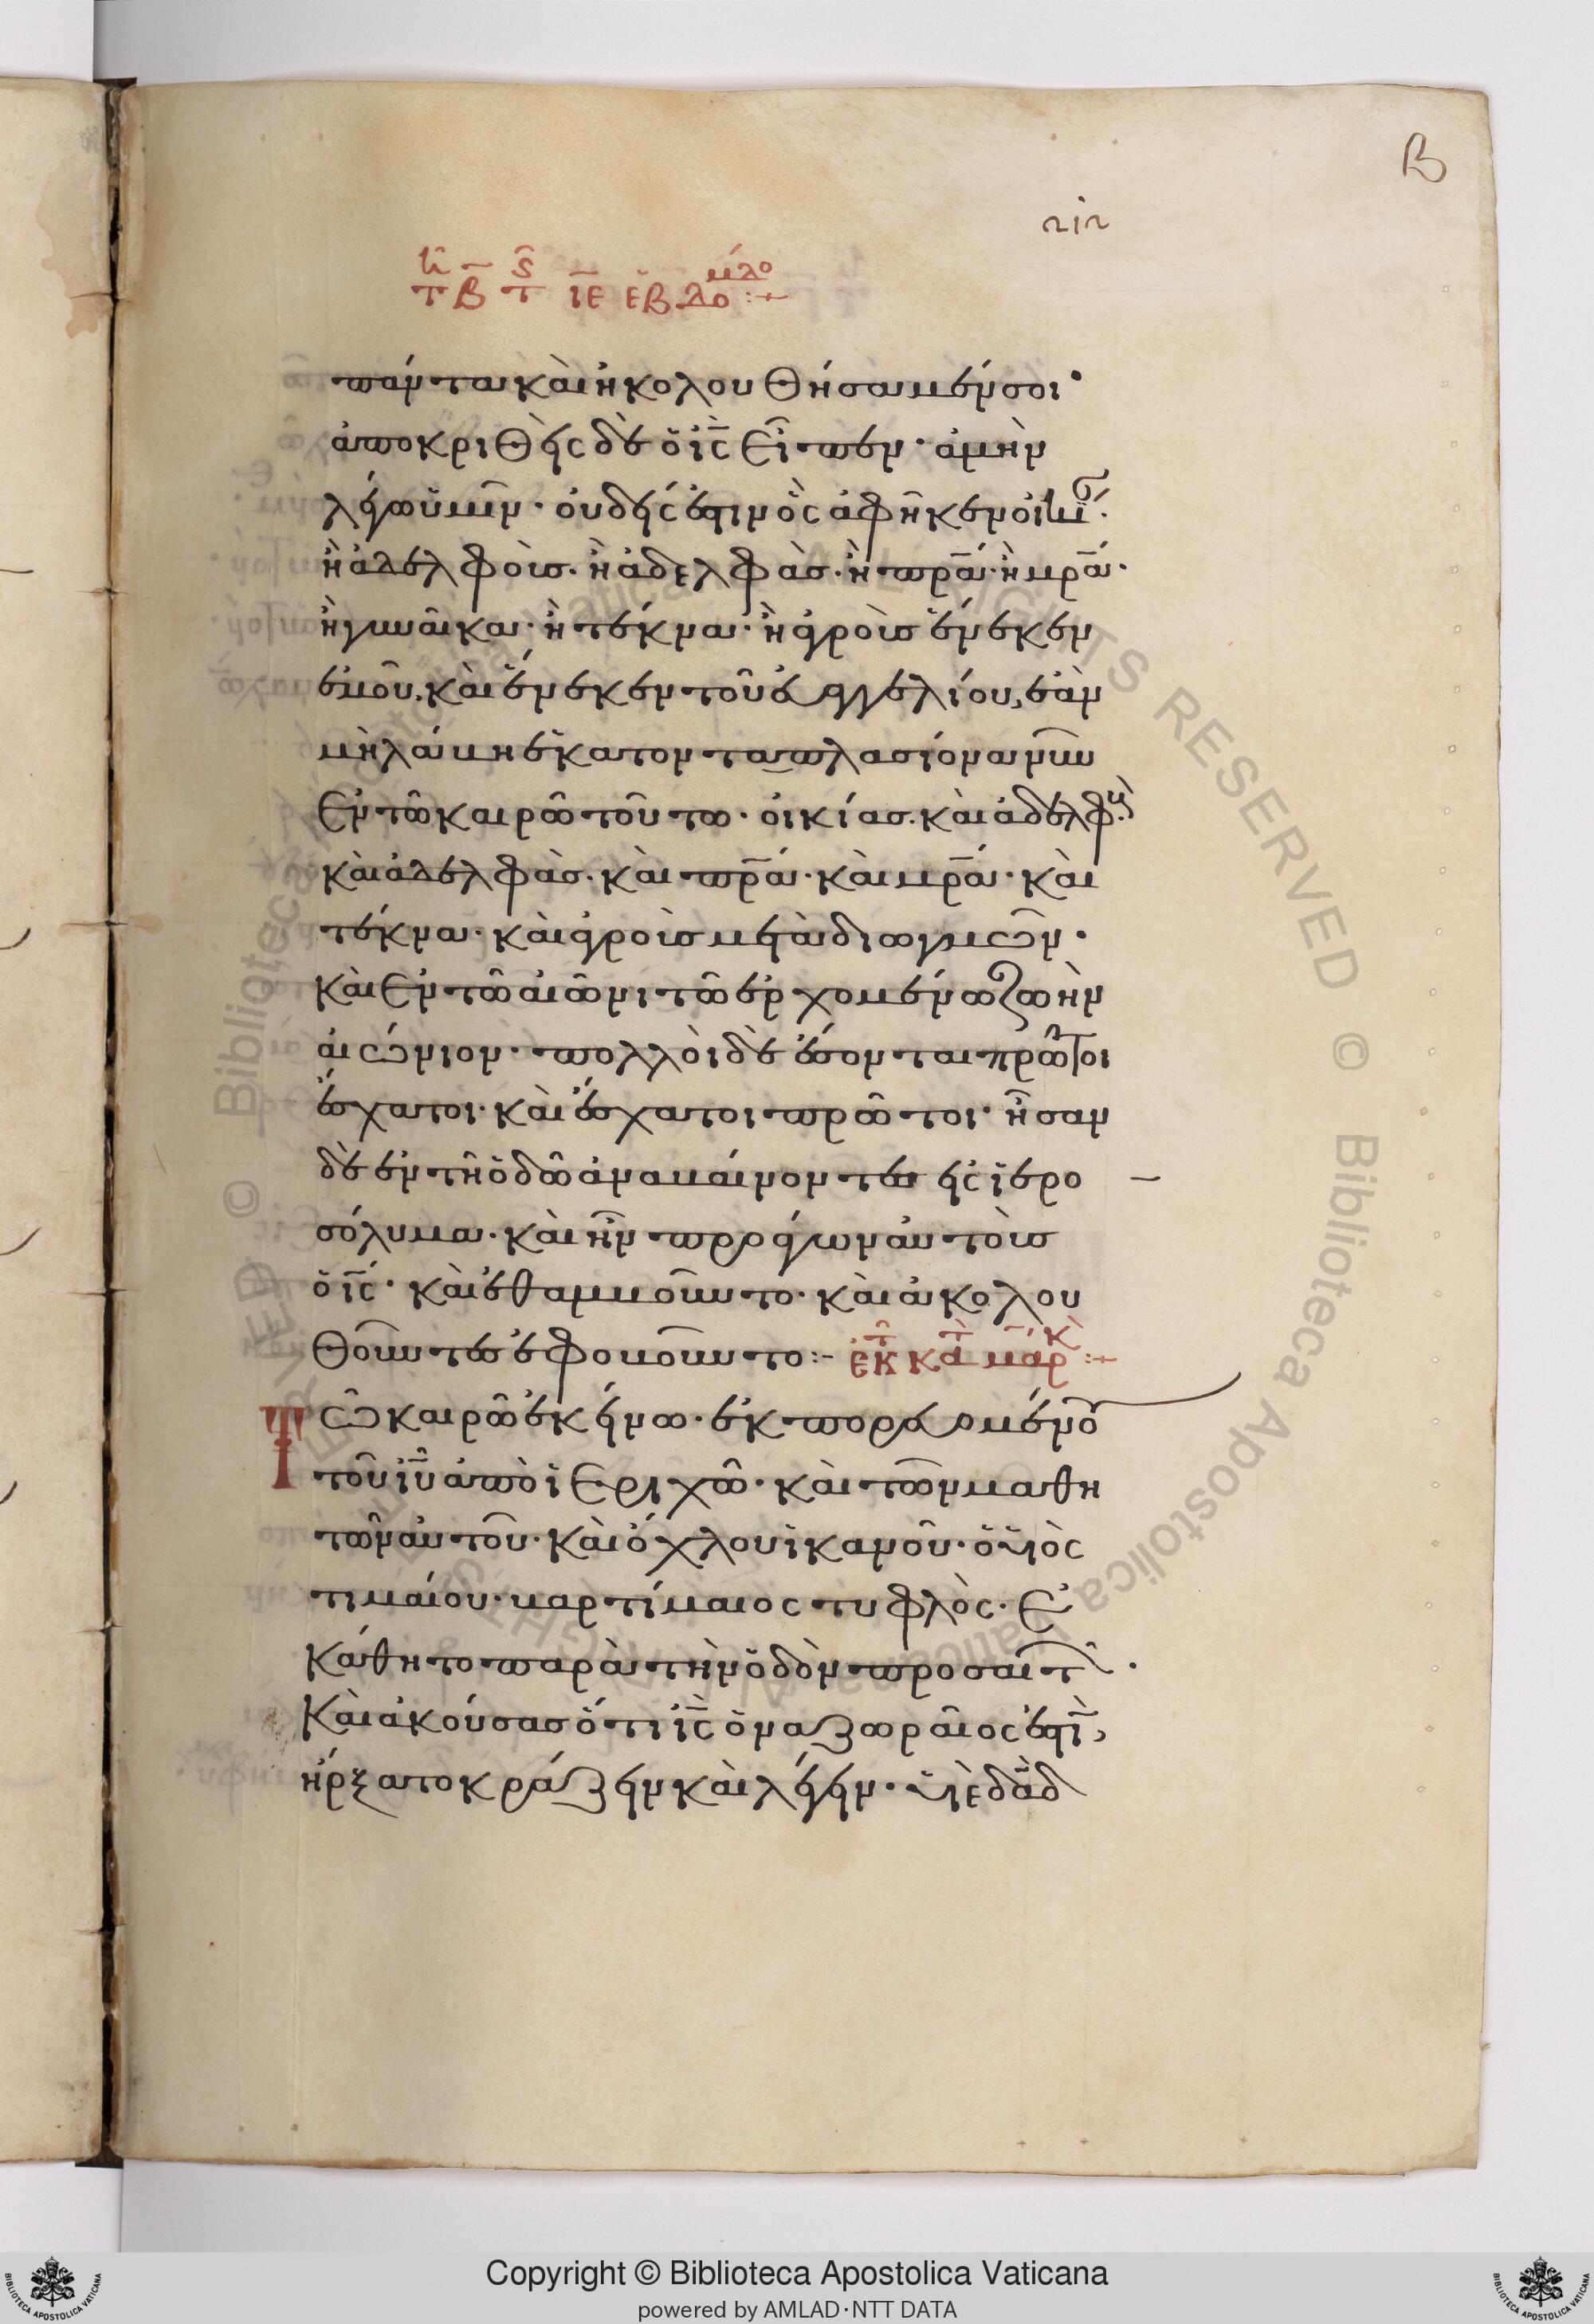 Β
πάντα καὶ ἠκολουθήσαμέν σοι·
ἀποκριθεὶς δὲ ὁ ις εἶπεν· ἀμὴν
λέγω ὑμῖν· οὐδείς ἐστιν ὃς ἀφῆκεν
ἢ ἀδελφοὺς· ἢ ἀδελφὰς· ἢ πρα· ἢ μρα·
ἢ γυναῖκα· ἢ τέκνα· ἢ ἀγροὺς ἕνεκεν
ἐμοῦ, καὶ ἕνεκεν τοῦ εὐαγγελίου, ἐὰν
μὴ λάβη ἑκατονταπλασίονα νῦν
ἐν τῶ καιρῶ τούτω· οἰκίας· καὶ ἀδελφοὺς
καὶ ἀδελφὰς· καὶ πρα· καὶ μρα· καὶ
τέκνα· καὶ ἀγροὺς μετὰ διωγμῶν·
καὶ ἐν τῶ αἰῶνι τῶ ἐρχομένω ζωὴν
αἰώνιον· πολλοὶ δὲ ἔσονται πρῶτοι
ἔσχατοι· καὶ ἔσχατοι πρῶτοι· ἦσαν
δὲ ἐν τῆ ὁδῶ ἀναβαίνοντες εἰς ἱερο
σόλυμα· καὶ ἦν προάγων αὐτοὺς
ὁ ις· καὶ ἐθαμβοῦντο· καὶ ἀκολου
θοῦντες ἐφοβοῦντο:– ἐκ τ κατ μαρκ :–
Τῶ καιρῶ ἐκείνω· ἐκπορευομένου
τοῦ ιυ ἀπὸ ἱεριχῶ· καὶ τῶν μαθη
τῶν αὐτοῦ· καὶ ὄχλου ἱκανοῦ· ὁ υἱὸς
τιμαίου· βαρτίμαιος τυφλὸς· ἐ
κάθητο παρὰ τὴν ὁδὸν προσαιτῶν·
καὶ ἀκούσας ὅτι ις ὁ ναζωραῖος ἐστὶ,
ἤρξατο κράζειν καὶ λέγειν· υἱὲ δαδ
Copyright © Biblioteca Apostolica Vaticana
powered by AMLAD·NTT DATA